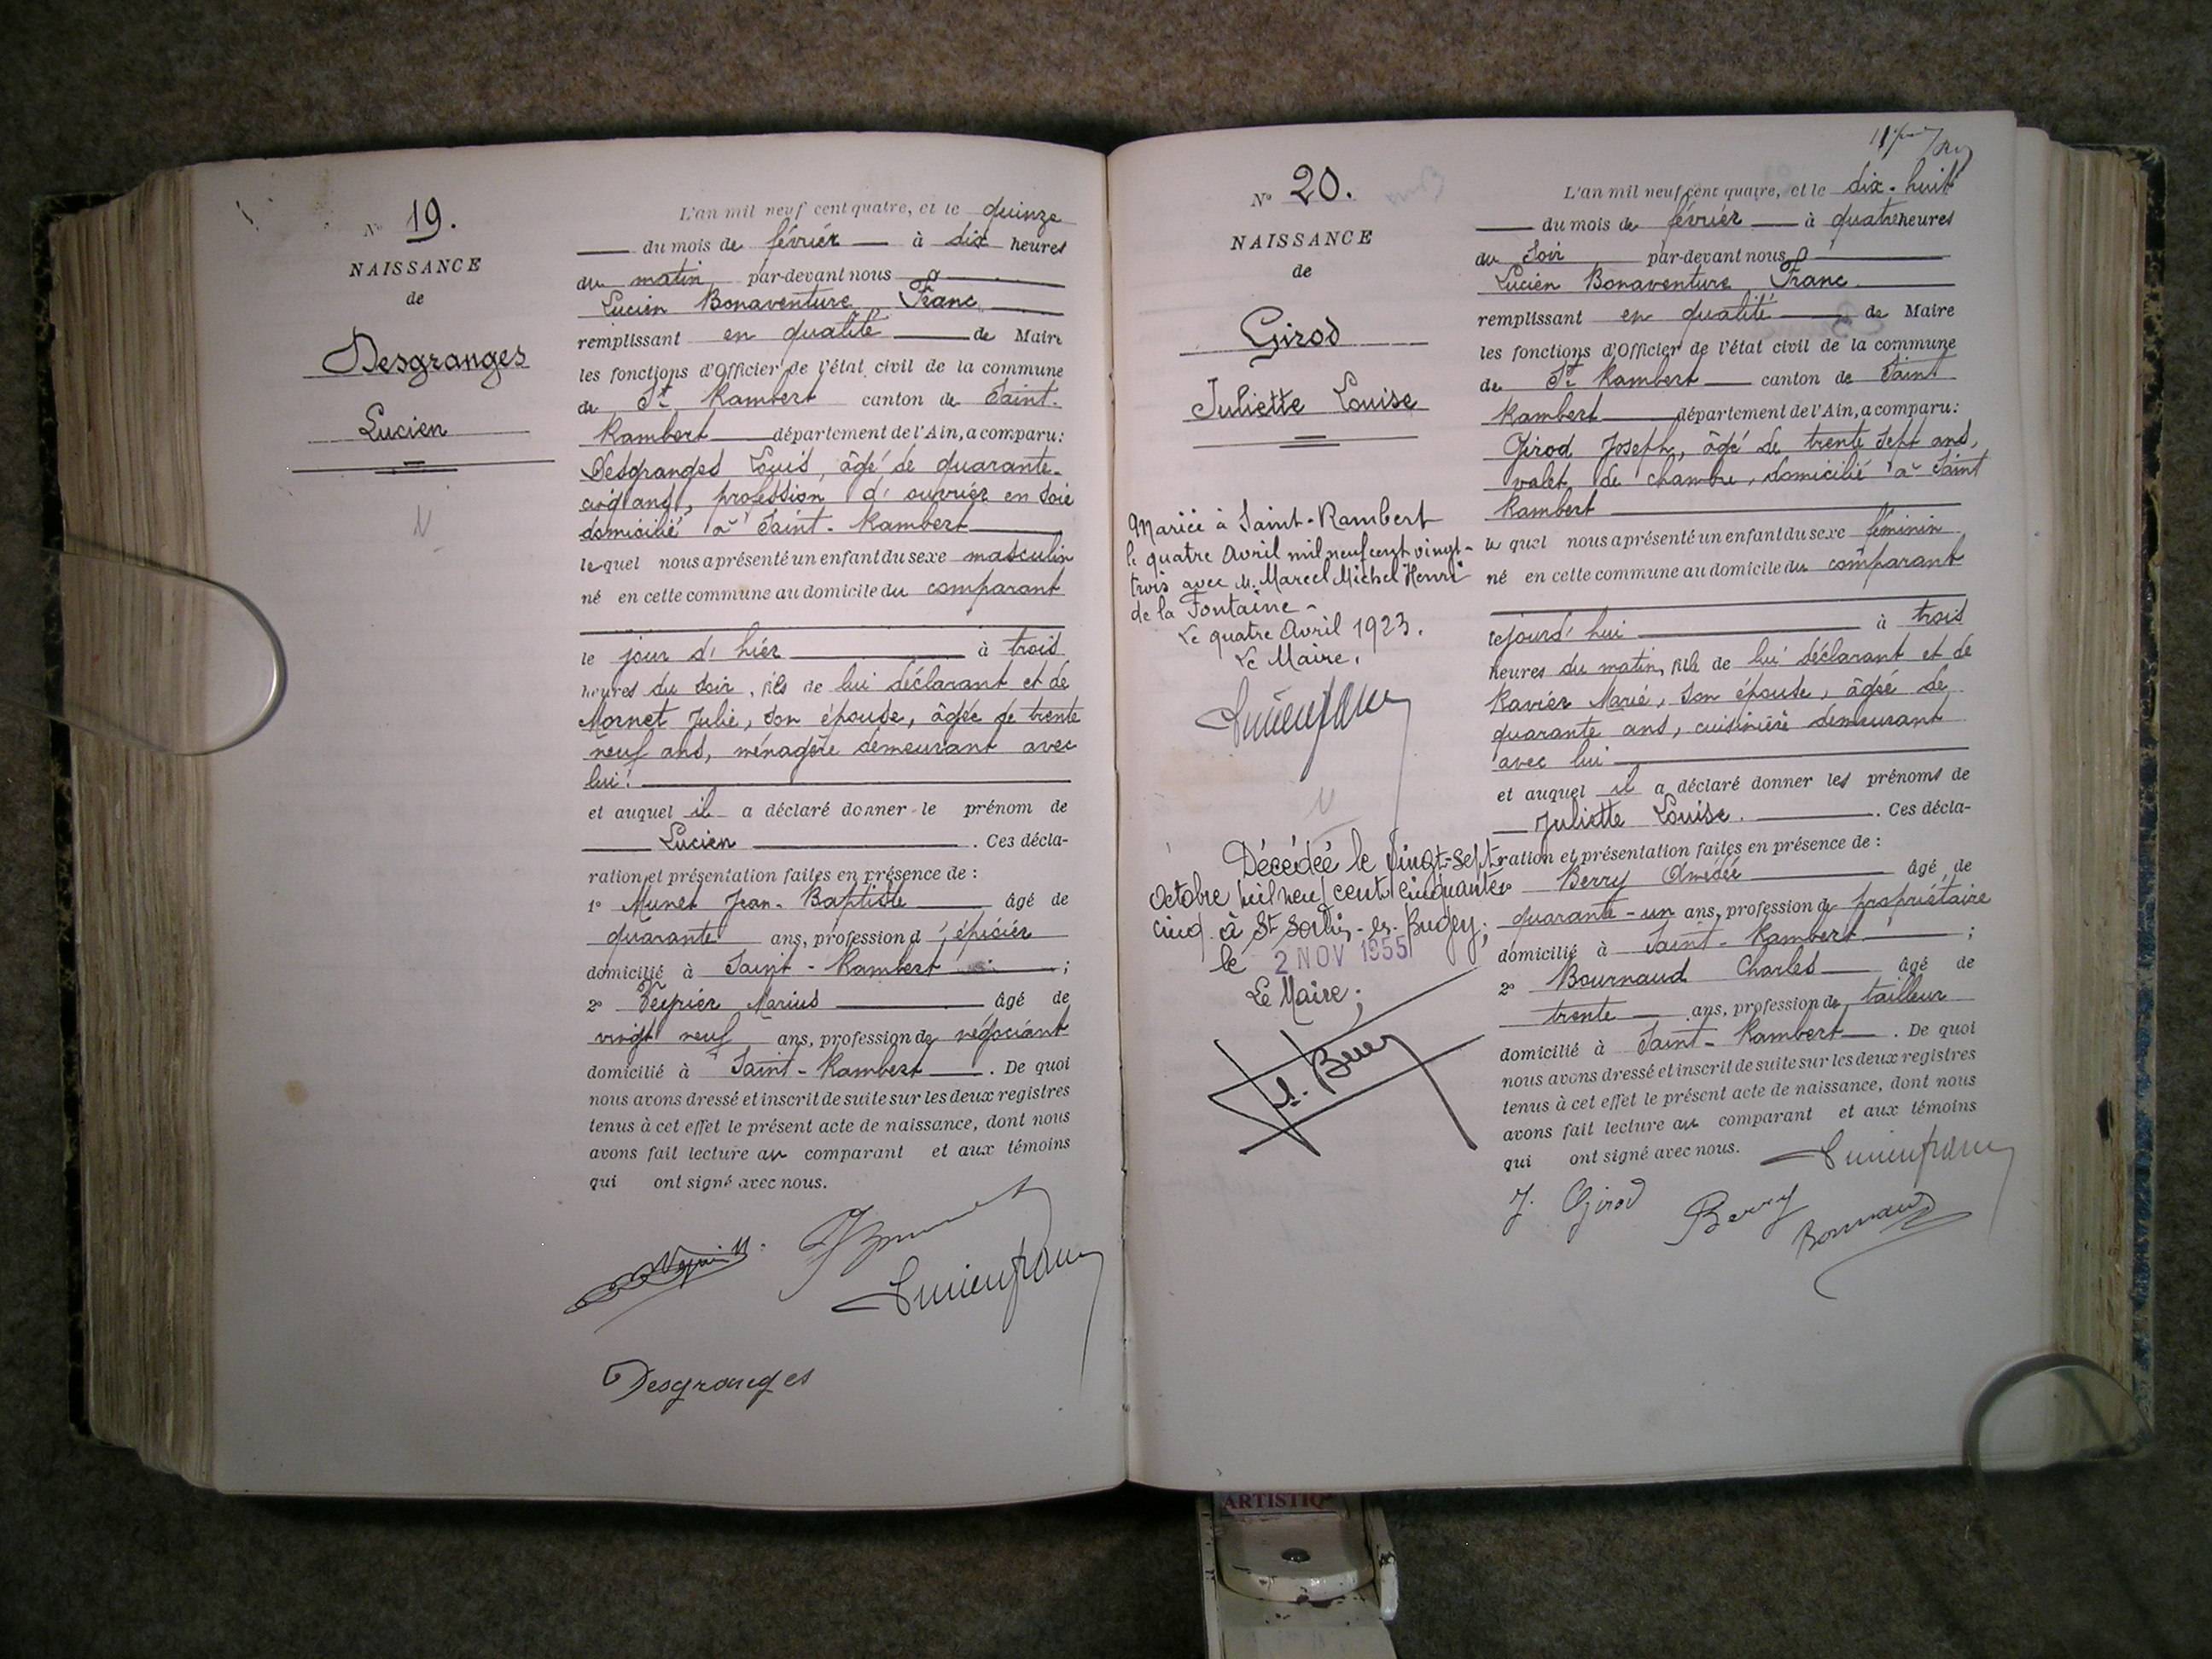 N° 19.
NAISSANCE
de
Desgranges
Lucien
N
L'an mil neuf cent quatre, et le quinze
du mois de février à dix heures
du matin par-devant nous
Lucien Bonaventure Franc
remplissant en qualité de Maire
les fonctions d'Officier de l'état civil de la commune
de St Rambert canton de Saint-
Rambert département de l'Ain, a comparu:
Desgranges Louis, âgé de quarante-
cinq ans, profession d'ouvrier en soie
domicilié à Saint-Rambert
lequel nous a présenté un enfant du sexe masculin
né en cette commune au domicile du comparant
le jour d'hier à trois
heures du soir, fils de lui déclarant et de
Mornet Julie, son épouse, âgée de trente
neuf ans, ménagère demeurant avec
lui.
et auquel il a déclaré donner le prénom de
Lucien. Ces décla-
ration et présentation faites en présence de :
1° Munet Jean-Baptiste âgé de
quarante ans, profession d'épicier
domicilié à Saint-Rambert ;
2° Veyrier Marius âgé de
vingt neuf ans, profession de négociant
domicilié à Saint-Rambert. De quoi
nous avons dressé et inscrit de suite sur les deux registres
tenus à cet effet le présent acte de naissance, dont nous
avons fait lecture au comparant et aux témoins
qui ont signé avec nous.
Lucien Franc
Desgranges
N° 20.
NAISSANCE
de
Girod
Juliette Louise
Mariée à Saint-Rambert
le quatre Avril mil neuf cent vingt-
trois avec M. Marcel Michel Henri
de la Fontaine -
Le quatre Avril 1923.
Le Maire,
Lucien Franc
N
Décédée le vingt-sept
Octobre mil neuf cent cinquante
cinq à St Sorlin-en-Bugey;
le 2 NOV 1955
Le Maire;
L'an mil neuf cent quatre, et le dix-huit
du mois de février à quatre heures
du soir par-devant nous
Lucien Bonaventure Franc
remplissant en qualité de Maire
les fonctions d'Officier de l'état civil de la commune
de St Rambert canton de Saint
Rambert département de l'Ain, a comparu:
Girod Joseph, âgé de trente sept ans,
valet de chambre, domicilié à Saint
Rambert
lequel nous a présenté un enfant du sexe féminin
né en cette commune au domicile du comparant
cejourd'hui à trois
heures du matin, fille de lui déclarant et de
Ravier Marie, son épouse, âgée de
quarante ans, cuisinière demeurant
avec lui
et auquel il a déclaré donner les prénoms de
Juliette Louise. Ces décla-
ration et présentation faites en présence de :
1° Berry Amédée âgé de
quarante-un ans, profession de propriétaire
domicilié à Saint-Rambert ;
2° Bournaud Charles âgé de
trente ans, profession de tailleur
domicilié à Saint-Rambert. De quoi
nous avons dressé et inscrit de suite sur les deux registres
tenus à cet effet le présent acte de naissance, dont nous
avons fait lecture au comparant et aux témoins
qui ont signé avec nous.
Lucien Franc
J. Girod Berry Bournaud
ARTISTIQ